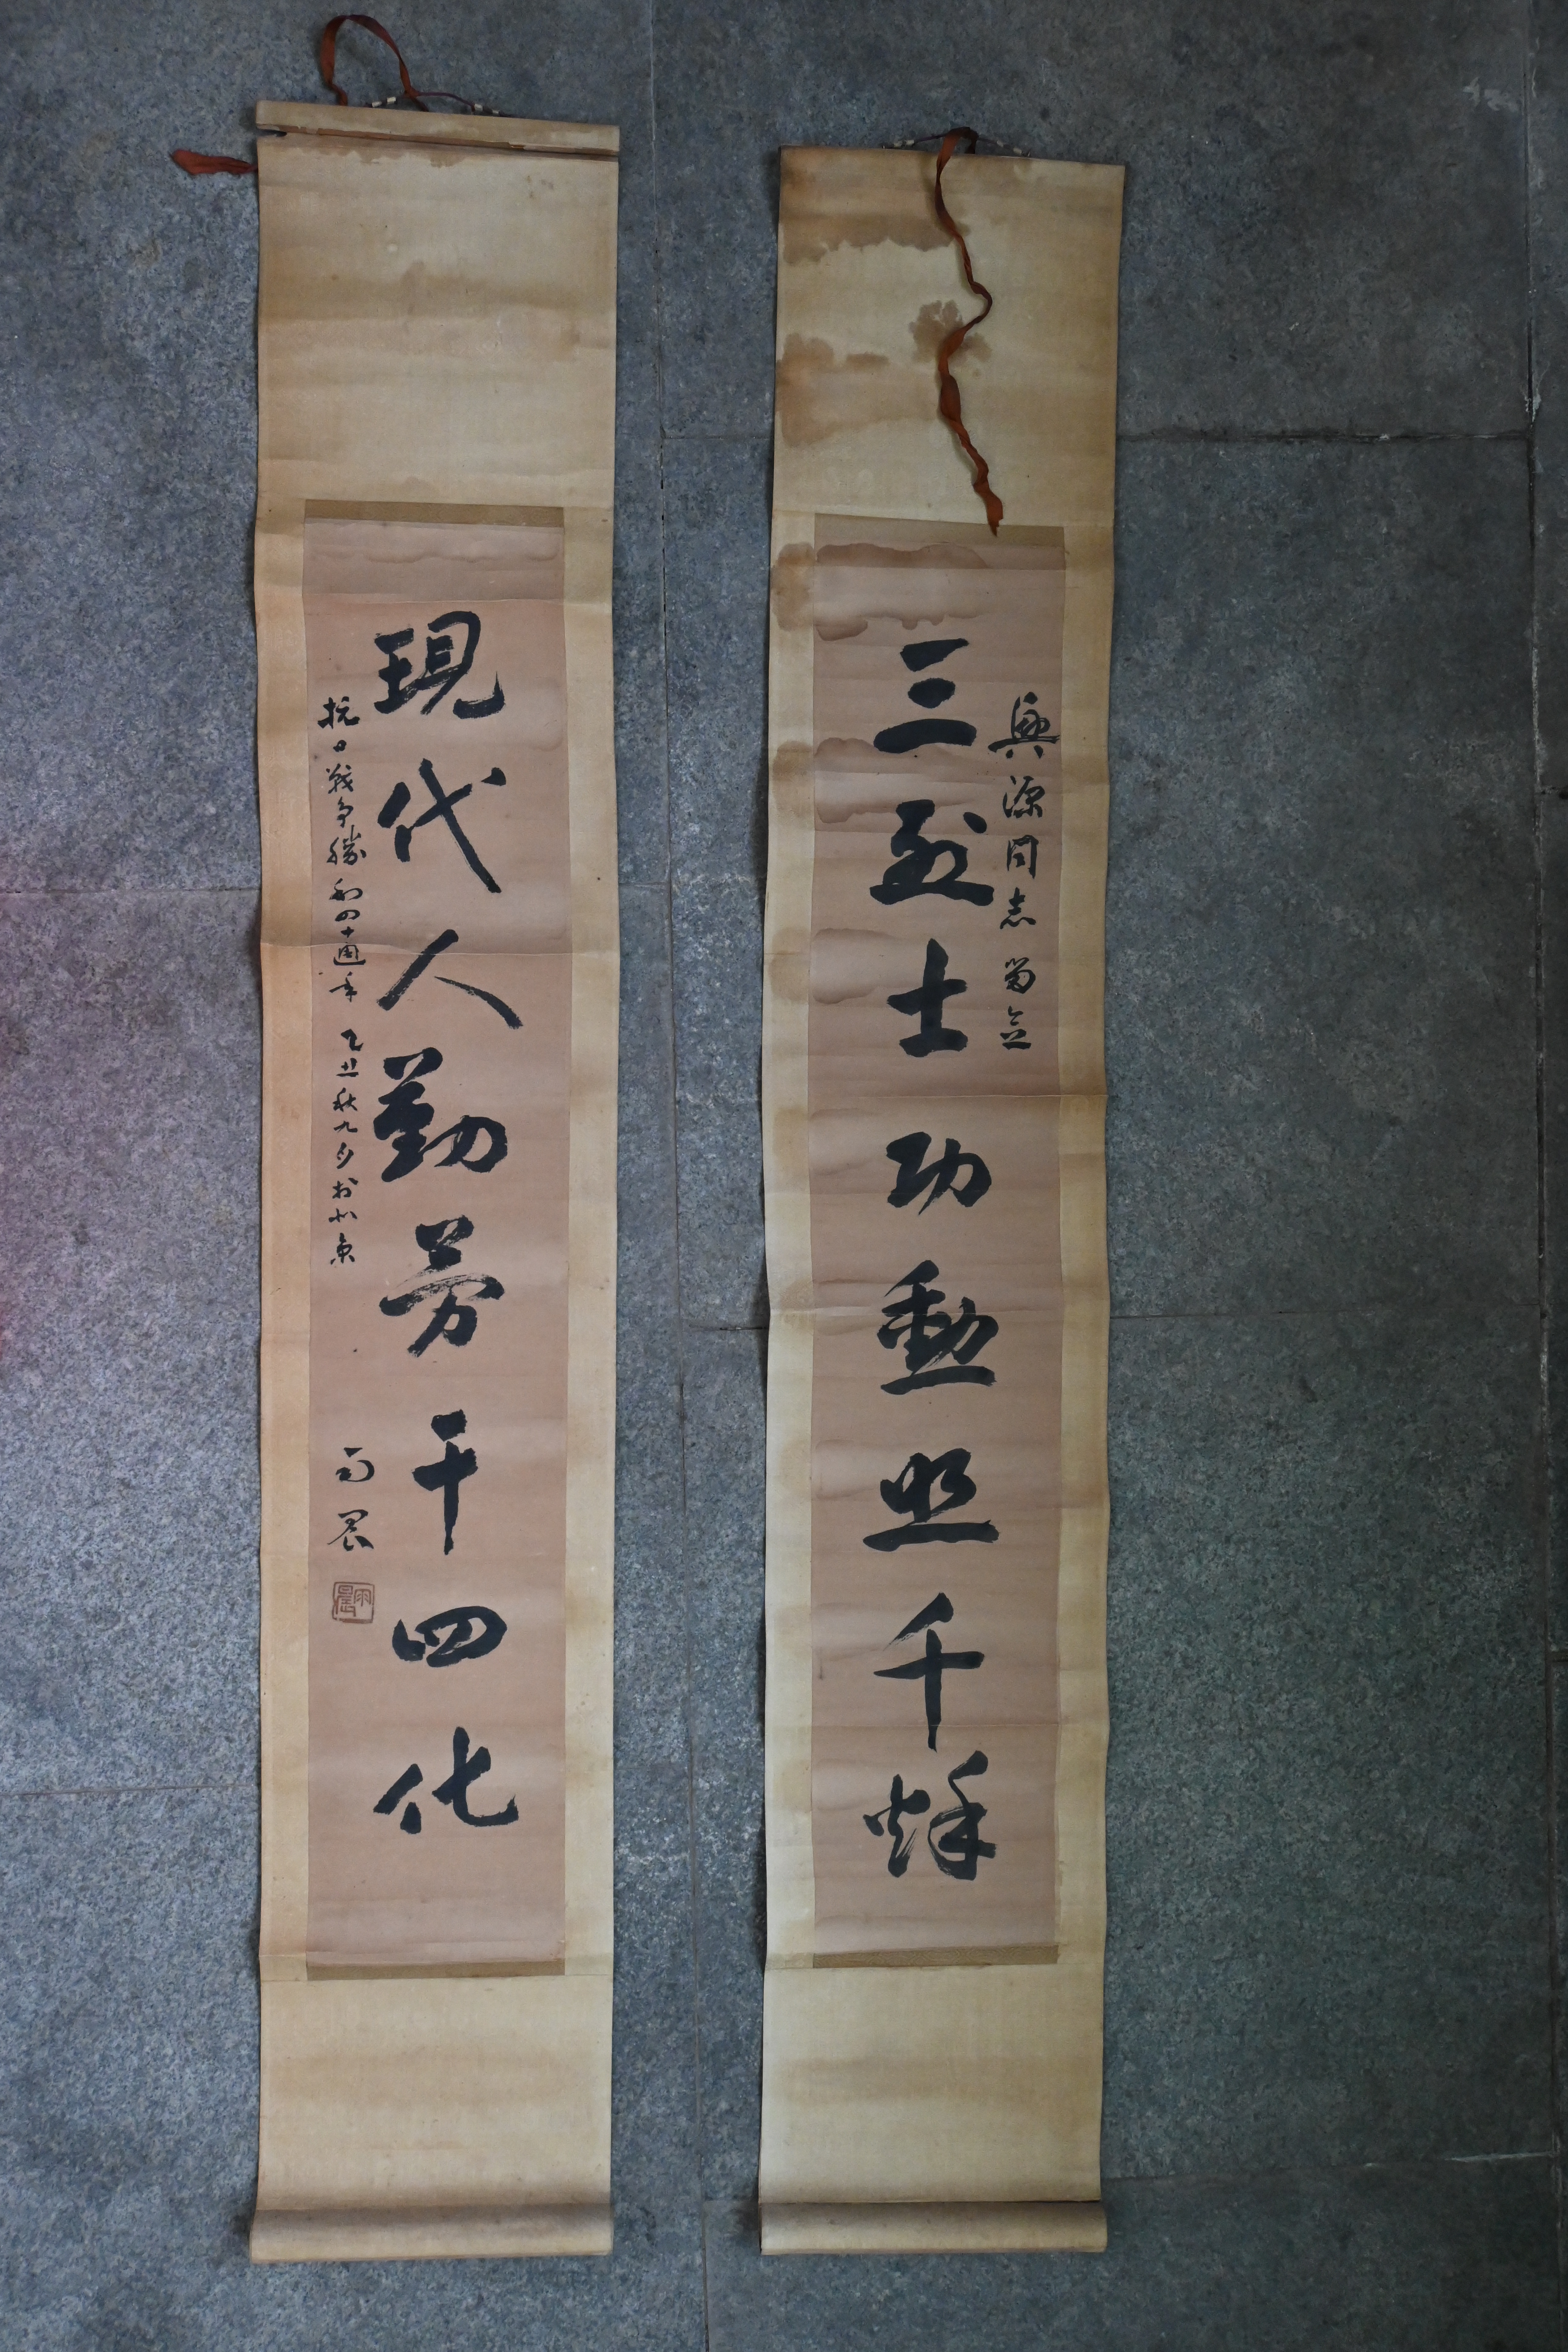 興源同志留念
三烈士功勳照千秌
現代人勤勞干四化
抗日戰爭勝利四十週年 乙丑秋九月於北京
雨晨
雨晨